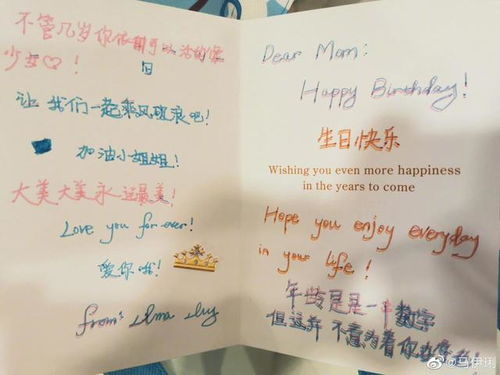 不管几岁你依然可以活的像
少女♡!
让我们一起乘风破浪吧!
加油小姐姐!
大美大美永远最美!
Love you for ever!
爱你哦!
from:
Dear Mom:
Happy Birthday!
生日快乐
Wishing you even more happiness
in the years to come
Hope you enjoy everyday
in your life!
年龄是是一串数字
但这并不意为着你
@马伊琍